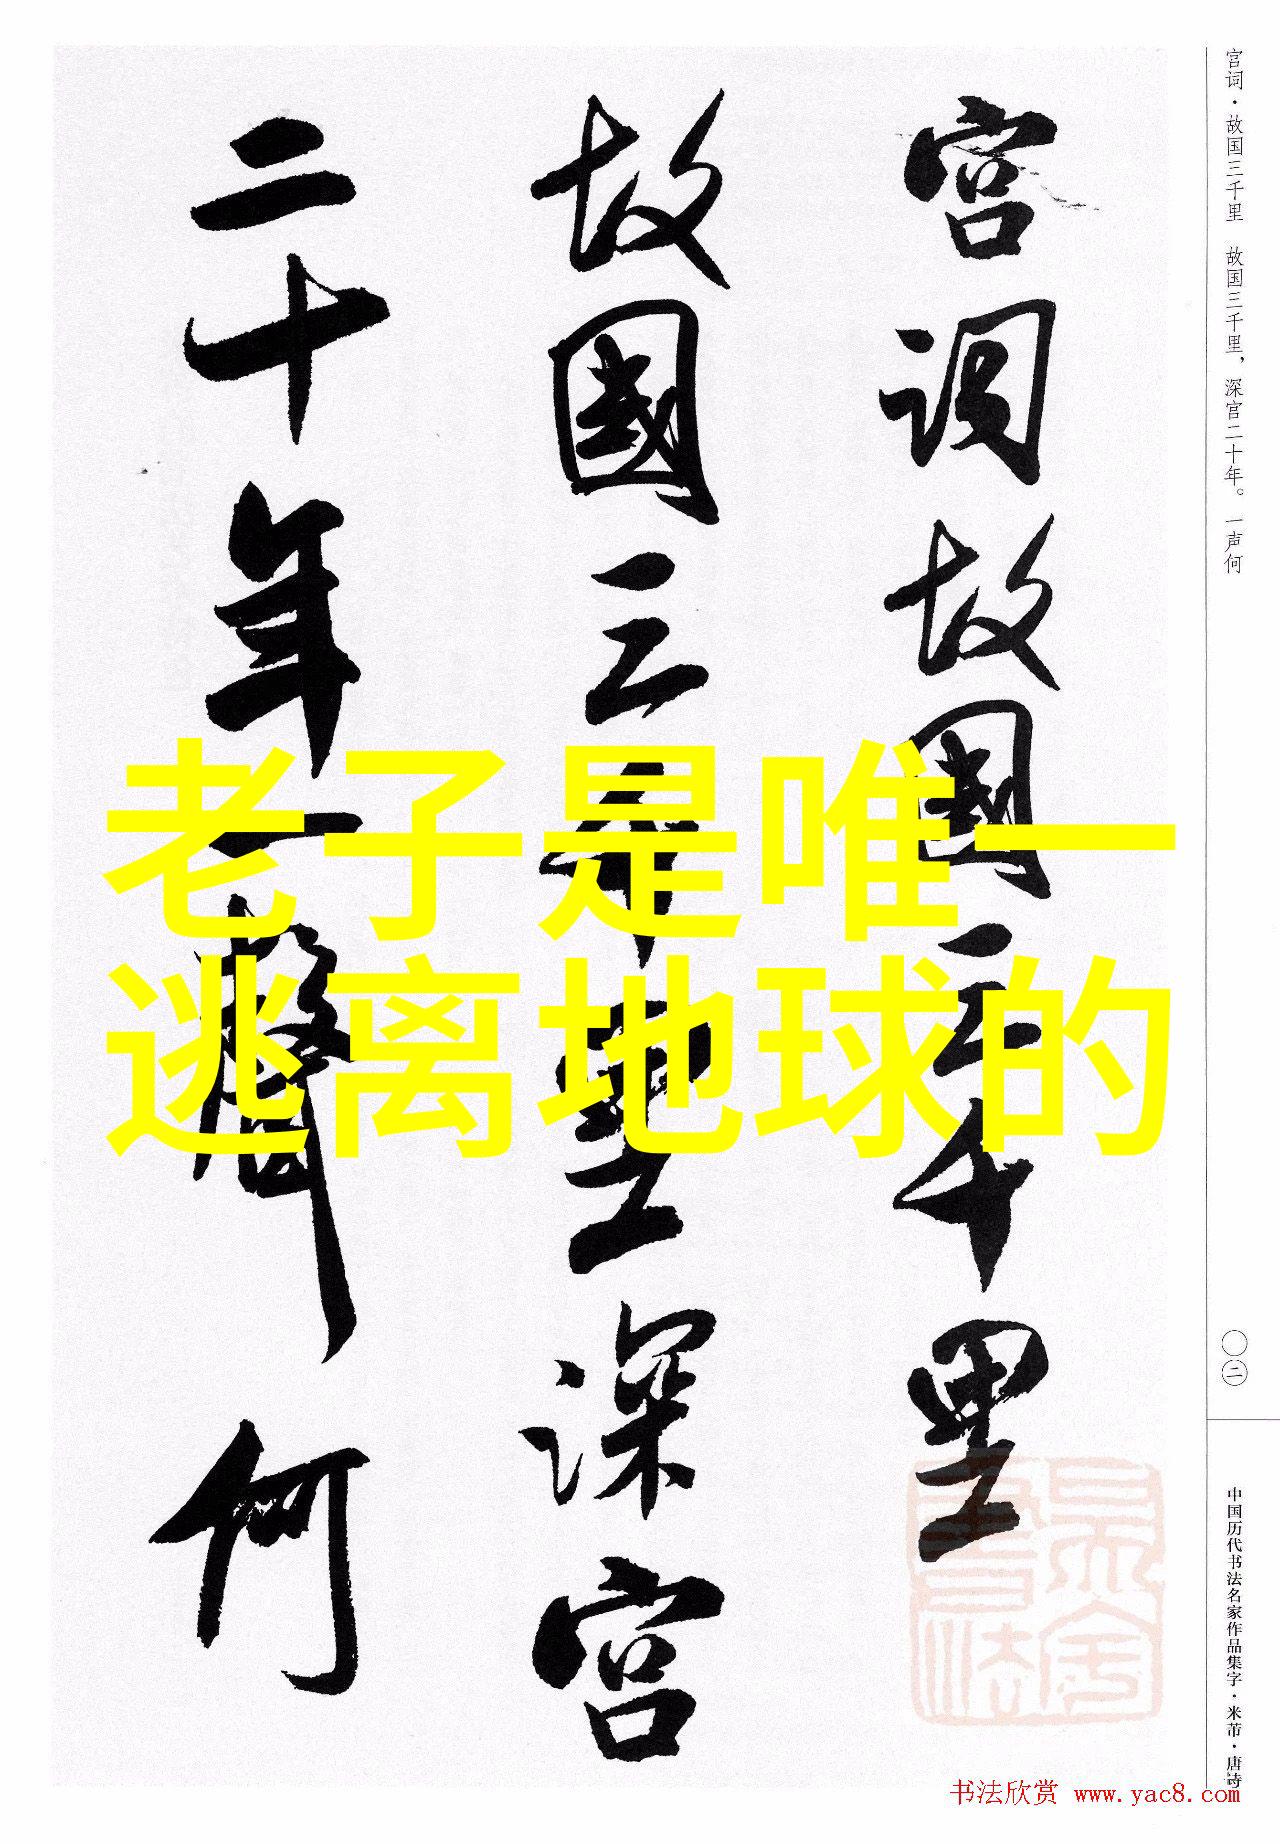 宫词·故国三千里 故国三千里，深宫二十年。一声何
宫词故国三千里
故國三千里深宫
二十年一聲何
老子是唯一
逃离地球的
〇二
中国历代书法名家作品集字·米芾·唐诗
书法欣赏 www.yac8.com